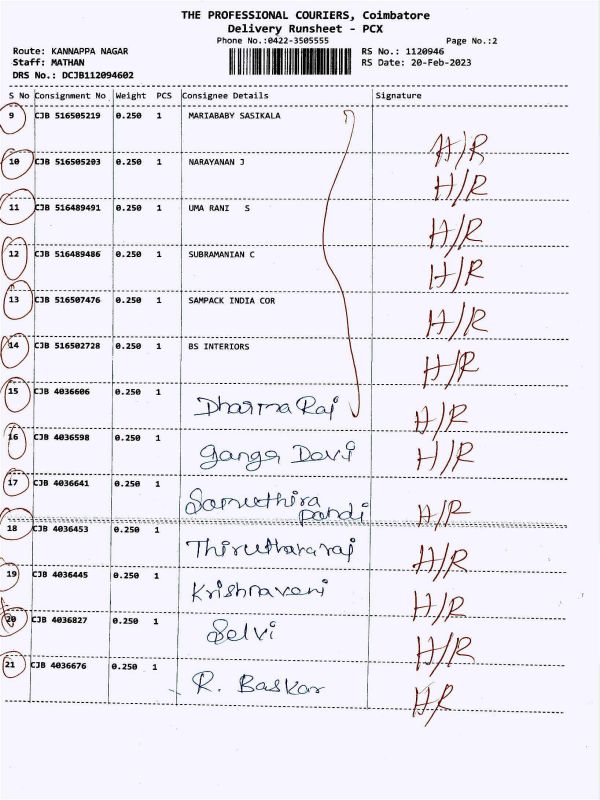 THE PROFESSIONAL COURIERS, Coimbatore
Delivery Runsheet - PCX
Phone No.:0422-3505555
Page No.:2
Route: KANNAPPA NAGAR
RS No.: 1120946
Staff: MATHAN
RS Date: 20-Feb-2023
DRS No.: DCJB112094602
S No Consignment No Weight PCS Consignee Details Signature
9 CJB 516505219 0.250 1 MARIABABY SASIKALA H/R
10 CJB 516505203 0.250 1 NARAYANAN J H/R
11 CJB 516489491 0.250 1 UMA RANI S H/R
12 CJB 516489486 0.250 1 SUBRAMANIAN C H/R
13 CJB 516507476 0.250 1 SAMPACK INDIA COR H/R
14 CJB 516502728 0.250 1 BS INTERIORS H/R
15 CJB 4036606 0.250 1 Dharma Raj H/R
16 CJB 4036598 0.250 1 Ganga Devi H/R
17 CJB 4036641 0.250 1 Samuthira
pandi H/R
18 CJB 4036453 0.250 1 H/R
19 CJB 4036445 0.250 1 Krishnaveni H/R
20 CJB 4036827 0.250 1 Selvi H/R
21 CJB 4036676 0.250 1 R. Baskar H/R